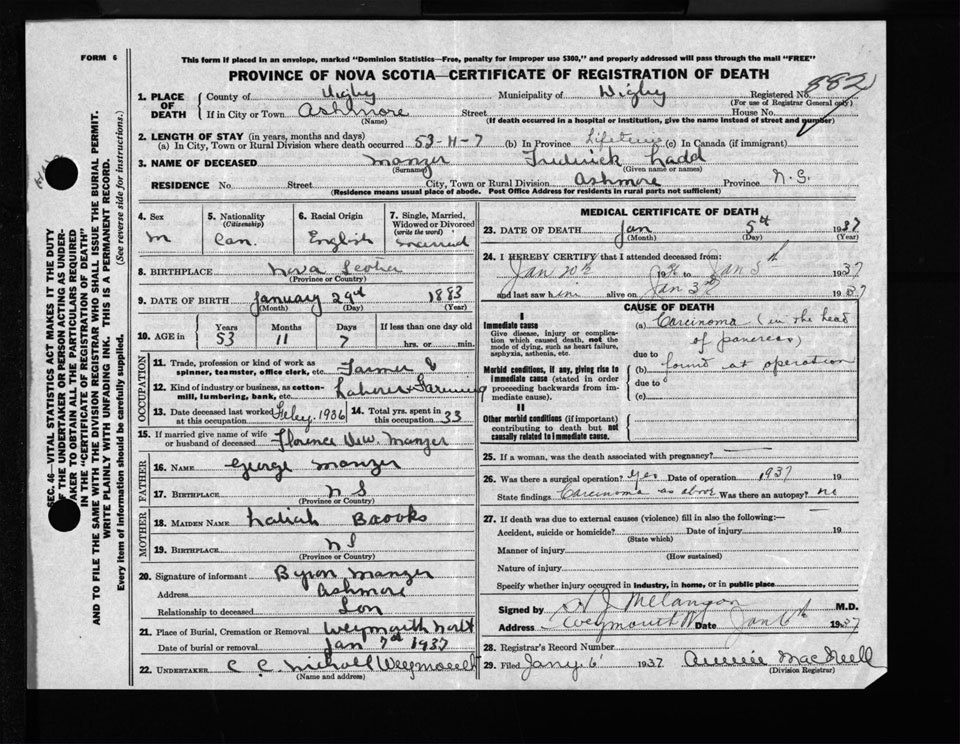 FORM 6
This form if placed in an envelope, marked "Dominion Statistics—Free, penalty for improper use $300," and properly addressed will pass through the mail "FREE"
PROVINCE OF NOVA SCOTIA—CERTIFICATE OF REGISTRATION OF DEATH
882
1. PLACE OF DEATH County of Digby Municipality of Digby Registered No.
(For use of Registrar General only)
If in City or Town Ashmore Street House No.
(Name) (If death occurred in a hospital or institution, give the name instead of street and number)
2. LENGTH OF STAY (in years, months and days)
(a) In City, Town or Rural Division where death occurred 53-11-7 (b) In Province Lifetime (c) In Canada (if immigrant)
3. NAME OF DECEASED Manzer Frederick Ladd
(Surname) (Given name or names)
RESIDENCE No. Street City, Town or Rural Division Ashmore Province N.S.
(Residence means usual place of abode. Post Office Address for residents in rural parts not sufficient)
4. Sex 5. Nationality (Citizenship) 6. Racial Origin 7. Single, Married, Widowed or Divorced (write the word)
M Can. English Married
8. BIRTHPLACE Nova Scotia
(Province or Country)
9. DATE OF BIRTH January 29th 1883
(Month) (Day) (Year)
10. AGE in Years Months Days If less than one day old
53 11 7 hrs. or min.
OCCUPATION
11. Trade, profession or kind of work as spinner, teamster, office clerk, etc. Farmer &
12. Kind of industry or business, as cotton-mill, lumbering, bank, etc. Laborer Farming
13. Date deceased last worked at this occupation 1936 14. Total yrs. spent in this occupation 33
15. If married give name of wife or husband of deceased Florence Manzer
FATHER
16. NAME George Manzer
17. BIRTHPLACE N S
(Province or Country)
MOTHER
18. MAIDEN NAME Brooks
19. BIRTHPLACE N S
(Province or Country)
20. Signature of informant Byron Manzer
Address Ashmore
Relationship to deceased Son
21. Place of Burial, Cremation or Removal Weymouth North
Date of burial or removal Jan 7th 1937
22. UNDERTAKER C. C. Nicholl Weymouth
(Name and address)
MEDICAL CERTIFICATE OF DEATH
23. DATE OF DEATH Jan 5th 1937
(Month) (Day) (Year)
24. I HEREBY CERTIFY that I attended deceased from:
Jan 20th 1936 to Jan 5th 1937
and last saw him alive on Jan 3rd 1937
CAUSE OF DEATH
I
Immediate cause
Give disease, injury or complication which caused death, not the mode of dying, such as heart failure, asphyxia, asthenia, etc.
Morbid conditions, if any, giving rise to immediate cause (stated in order proceeding backwards from immediate cause).
II
Other morbid conditions (if important) contributing to death but not causally related to immediate cause.
(a) Carcinoma (in the head
of pancreas)
due to
(b) found at operation
due to
(c)
25. If a woman, was the death associated with pregnancy?
26. Was there a surgical operation? yes Date of operation 1937 19
State findings Carcinoma as above Was there an autopsy? no
27. If death was due to external causes (violence) fill in also the following:—
Accident, suicide or homicide? Date of injury 19
(State which)
Manner of injury
(How sustained)
Nature of injury
Specify whether injury occurred in industry, in home, or in public place
Signed by H J Melançon M.D.
Address Weymouth N. Date Jan 6th 1937
28. Registrar's Record Number
29. Filed Jany 6 1937. Annie MacNeill
(Division Registrar)
SEC. 46—VITAL STATISTICS ACT MAKES IT THE DUTY
OF THE UNDERTAKER OR PERSON ACTING AS UNDER-
TAKER TO OBTAIN ALL THE PARTICULARS REQUIRED
IN THE "CERTIFICATE OF REGISTRATION OF DEATH"
AND TO FILE THE SAME WITH THE DIVISION REGISTRAR WHO SHALL ISSUE THE BURIAL PERMIT.
WRITE PLAINLY WITH UNFADING INK. THIS IS A PERMANENT RECORD.
Every item of information should be carefully supplied. (See reverse side for instructions.)